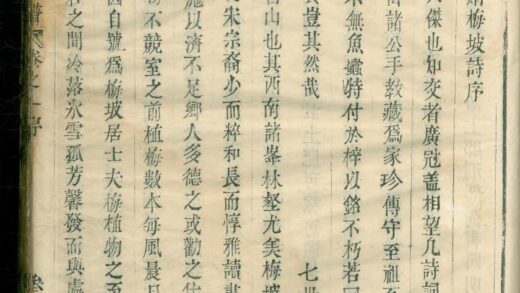 贈梅坡詩序
人傑也如交者廣冠蓋相望凡詩詞
諸公手教藏爲家珍傳守至祖
不無魚蠹特付於梓以銘不朽若
豈其然哉 七
山也其西南諸峯林壑尤美梅坡
宋宗裔少而粹和長而惇雅讀書
施以濟不足鄉人多德之或勸之仕
不競室之前植梅數本每風晨月
因自號爲梅坡居士夫梅植物之至
之間冷落氷雪孤芳馨發而與處
譜 卷之一序